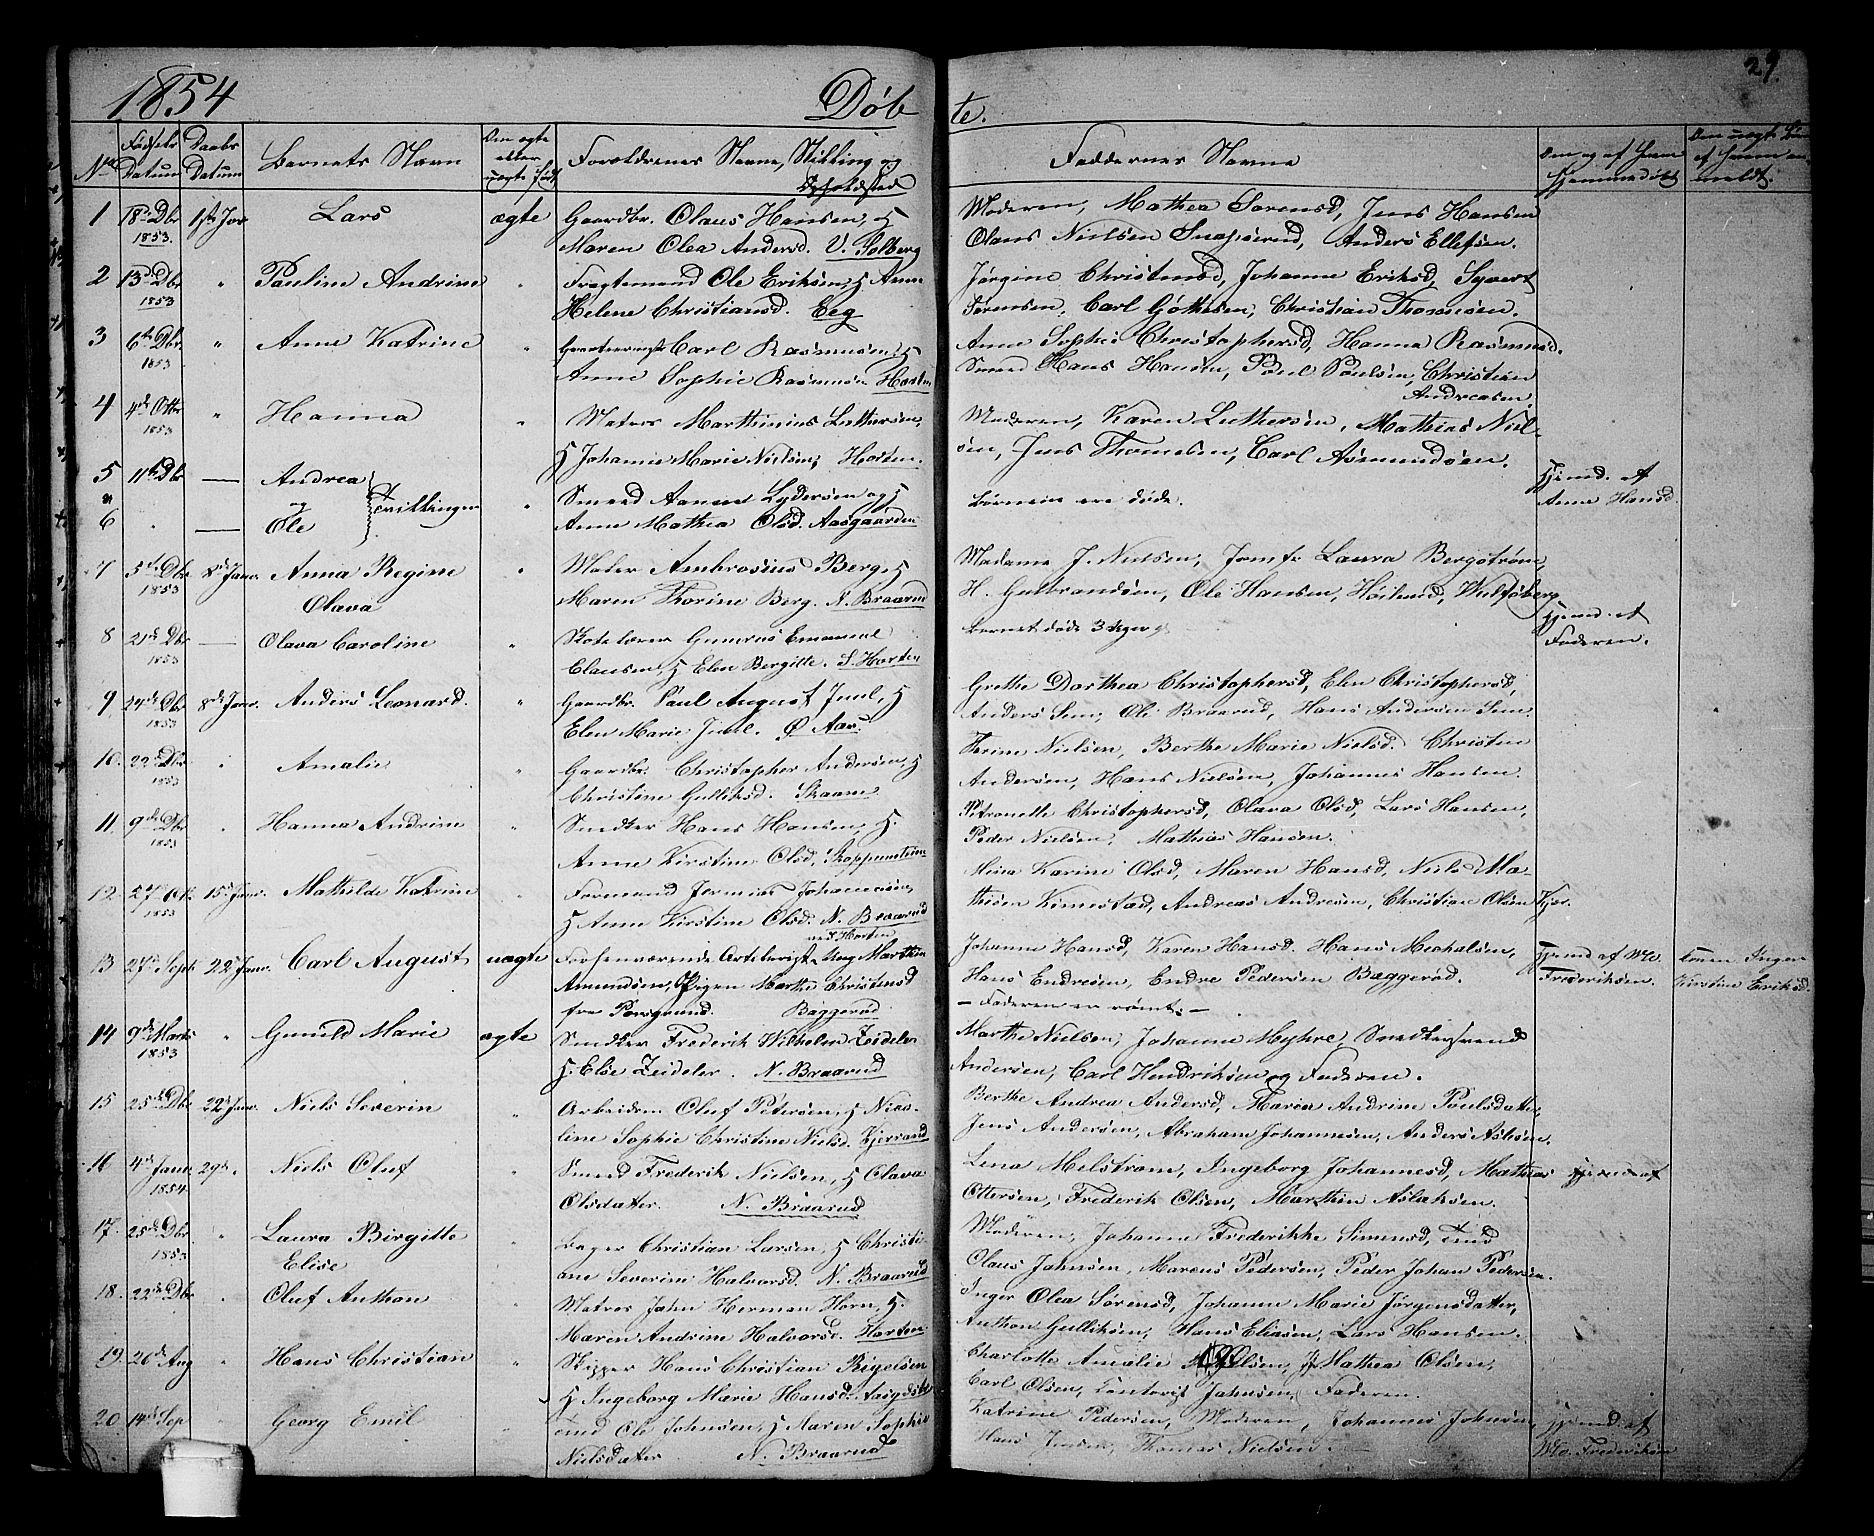 1854
Døb
te.
29.
No
Fødsels
Datum
Daabs
Datum
Barnets Navn
Om ægte
eller
uægte født
Forældrenes Navne, Stilling og
Opholdsted
Faddernes Navne
Om og af hvem
hjemmedøbt
Om uægte
af hvem an-
meldt.
1 18de Dbr 1ste Jan Lars ægte Gaardbr. Olaus Hansen, H
1853.
Maren Olea Andersd. V. Solberg
Moderen, Mathea Sørensd, Jens Hansen
Olaus Nielsen Snapsrud, Anders Ellefsen.
2 13de Dbr " Pauline Andrine " Fragtemand Ole Eriksen, H Anne
1853
Helene Christiansd. Eeg
Jørgine Christensd, Johanne Eriksd, Syvert
Sørensen, Carl Gøthesen, Christian Thomesen.
3 6te Dbr. " Anne Katrine " Carl Rasmussen, H
1853
Anne Sophie Rasmussen Horten
Anne Sophie Christophersd, Hanna Rasmusd.
Smed Hans Hansen, Poul Poulsen, Christian
Andreasen.
4 4de Octbr " Hanna " Matros Marthinius Luthersen,
1853
H Johanne Marie Nielsen, Horten.
Moderen, Karen Luthersen, Mathias Niel-
sen, Jens Thomesen, Carl Asmundsen.
5 11te Dbr — Andrea
og Tvillinger
6 " — Ole
" Smed Aanen Lydersen og H
Anne Mathea Olsd. Aasgaarden
Børnene ere døde.
Hjemd. af
Anne Hansd
7 5te Dbr 8de Janr. Anna Regine " Maler Ambrosius Berg, H
1853
Olava
Maren Thorine Berg. N. Braarud
Madame J. Nielsen, Jomfr Laura Bergstrøm,
H. Gulbrandsen, Ole Hansen, Høilund, Wulfsberg
8 21de Dbr — Olava Caroline " Gunerus Emanuel
1853
Clausen, H Elen Bergitte. S. Horten
Barnet døde 3
Hjemd. af
Faderen.
9 24de Dbr 8de Janr. Anders Leonard. " Gaardbr. Paul August Juul, H
1853
Elen Marie Juul. Ø Aas.
Grethe Dorthea Christophersd, Elen Christophersd,
Anders Sem, Ole Braarud, Hans Andersen Sem.
10 22de Dbr " Amalie " Gaardbr. Christopher Andersen, H
1853
Christine Gulliksd. Skaane
Nielsen, Berthe Marie Nielsd. Christen
Andersen, Hans Nielsen, Johannes Hansen.
11. 9de Dbr " Hanna Andrine " Snedker Hans Hansen, H.
1853
Anne Kirstine Olsd,
Petronelle Christophersd, Olava Olsd, Lars Hansen,
Peder Nielsen, Mathias Hansen.
12. 27de 15de Janr. Mathilde Katrine " Formand Jermias Johannesen,
1853
H Anne Kirstine Olsd. N. Braarud
ved Horten
Mina Karine Olsd, Maren Hansd, Niels Ma-
thisen Kimestad, Andreas Andresen, Christian Olsen
Hjr.
13 27de Septr 22de Janr. Carl August uægte Marthin
Amundsen, Pigen Marthe Christensd
fra Porsgrund. Baggerød
Johanne Hansd, Karen Hansd. Hans Mechalsen,
Hans Endresen, Endre Pedersen Baggerød.
— Faderen er rømt. —
Hjemd af Md.
Frederiksen.
Konen Inger
Kirstine Eriksd.
14 9de Marts " Gunild Marie ægte Snedker Frederik Wilhelm Zeideler
1853
H. Else Zeideler. N. Braarud
Marthe Nielsen, Johanne Myhre, Snedkersvend
Andersen, Carl Hendriksen og Faderen.
15 25de Dbr 22de Janr. Niels Severin " Arbeidsm Oluf Petersen, H Nico-
line Sophie Christine Nielsd. Kjerrand
Berthe Andrea Andersd, Maren Andrine Poulsdatter,
Jens Andersen, Abraham Johannesen, Anders Aslesen.
16 4de Janr 29de. Niels Oluf " Smed Frederik Nielsen, H Olava
1854
Olsdatter. N. Braarud
Lena Melstrøm, Ingeborg Johannesd, Mathias
Ottersen, Frederik Olsen, Marthin Aslaksen.
Hjemd af
17. 25de Dbr. " Laura Birgitte " Bager Christian Larsen, H Christi-
1853
Elise
ane Severine Halvorsd. N. Braarud
Moderen, Johanne Frederikke Simensd,
Olaus Jahnsen, Marcus Pedersen, Peder Johan Pedersen.
18. 22de Dbr " Oluf Anthon " Matros Jahn Herman Horn, H.
Maren Andrine Halvorsd. Horten
Inger Olea Sørensd, Johanne Marie Jørgensdatter,
Anthon Gulliksen, Hans Eliasen, Lars Hansen.
19. 26de Aug " Hans Christian " Skipper Hans Christian Rigelsen
H Ingeborg Marie Hansd.
Charlotte Amalie Mathea Olsen,
Carl Olsen, Contorist Jahnsen, Faderen.
20 14de Sep Georg Emil Ole Johnsen, H Maren Sophie
Nielsdatter N. Braarud
Katrine Pedersen, Moderen, Johannes Johnsen,
Hans Jensen, Thomas Nielsen. —
Hjemd. af
Md. Frederiksen